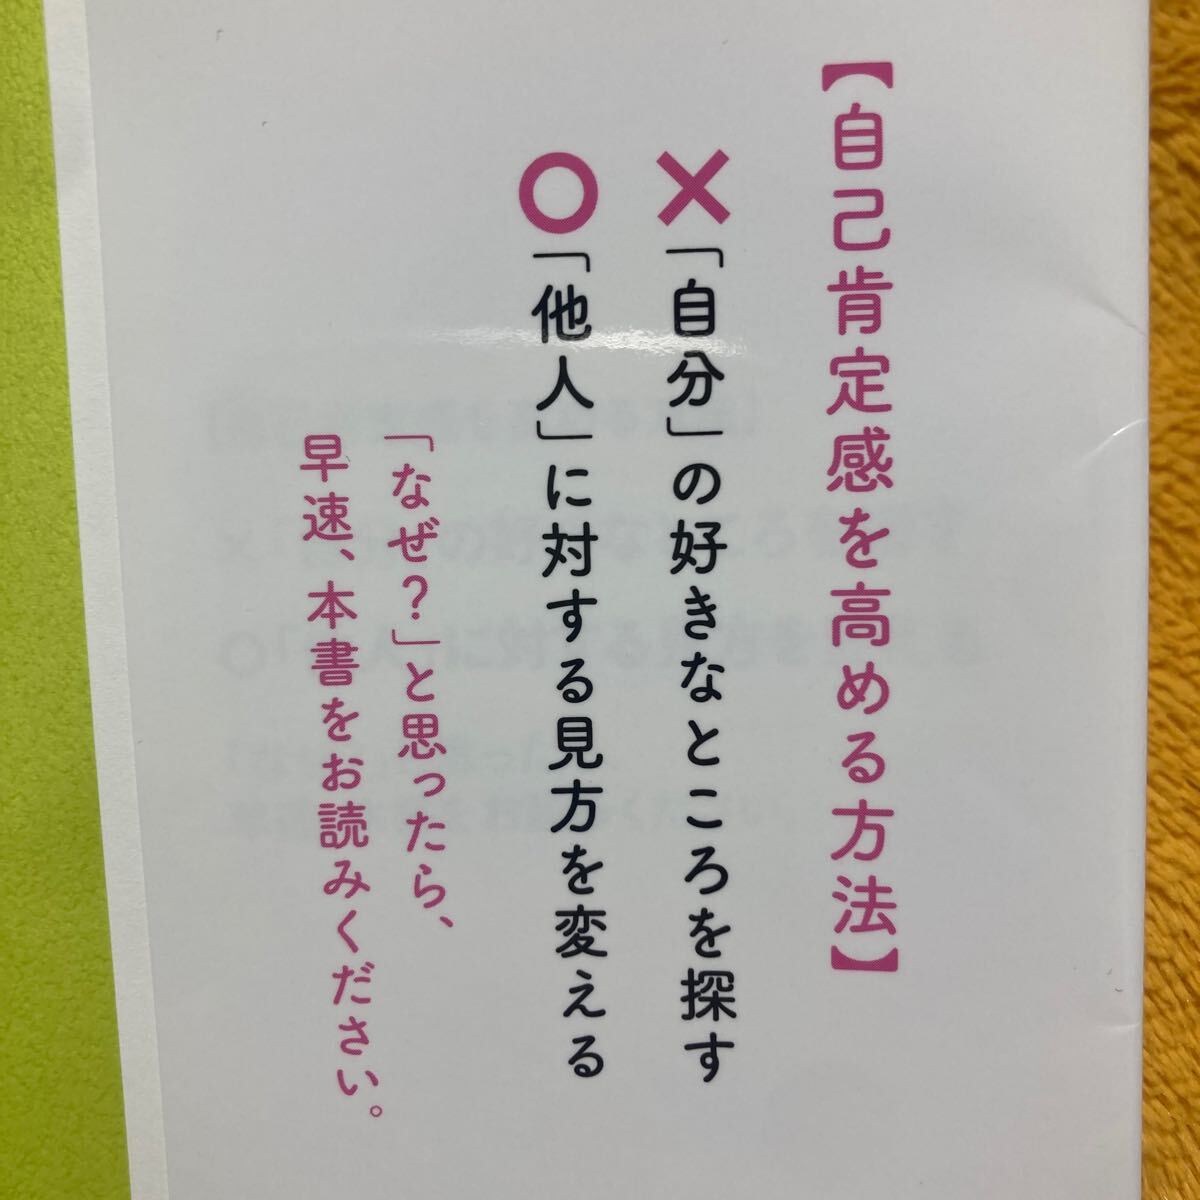 【自己肯定感を高める方法】
×「自分」の好きなところを探す
○「他人」に対する見方を変える
「なぜ？」と思ったら、
早速、本書をお読みください。